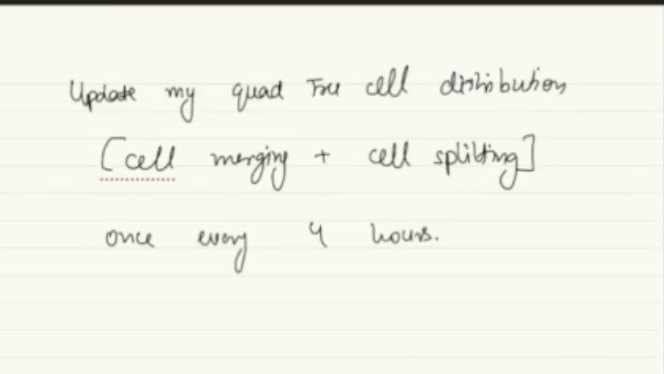 Update my quad Tree cell distribution
[cell merging + cell splitting]
once every 4 hours.